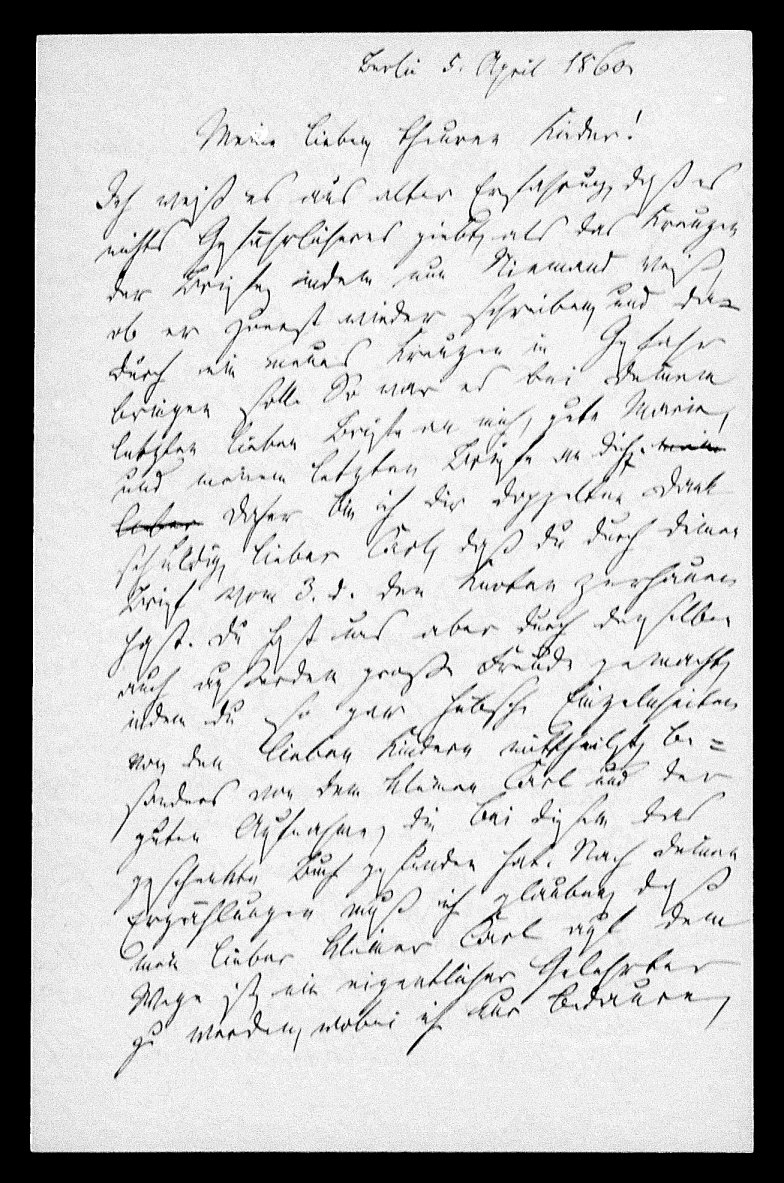 Berlin 5. April 1860.
Meine lieben theuren Kinder!
Ich weiß es aus alter Erfahrung, daß es
nichts Gefährlicheres giebt, als das Kreuzen
der Briefe, indem nun Niemand weiß,
ob er zuerst wieder schreiben, und da-
durch ein neues Kreuzen in Gefahr
bringen solle. So war es bei Deinem
letzten lieben Briefe an mich, gute Marie,
und meinem letzten Briefe an Dich. mein
lieber Daher bin ich dir doppelten Dank
schuldig, lieber Carl, daß du durch deinen
Brief vom 3. d. den Knoten zerhauen
hast. Du hast uns aber durch denselben
auch außerdem große Freude gemacht,
indem du so gar hübsche Einzelnheiten
von den lieben Kindern mittheilst, be=
sonders von dem kleinen Carl und der
guten Aufnahme, die bei diesem das
geschenkte Buch gefunden hat. Nach deinen
Erzählungen muß ich glauben, daß
mein lieber kleiner Carl auf dem
Wege ist, ein eigentlicher Gelehrter
zu werden, wobei ich nur bedaure,